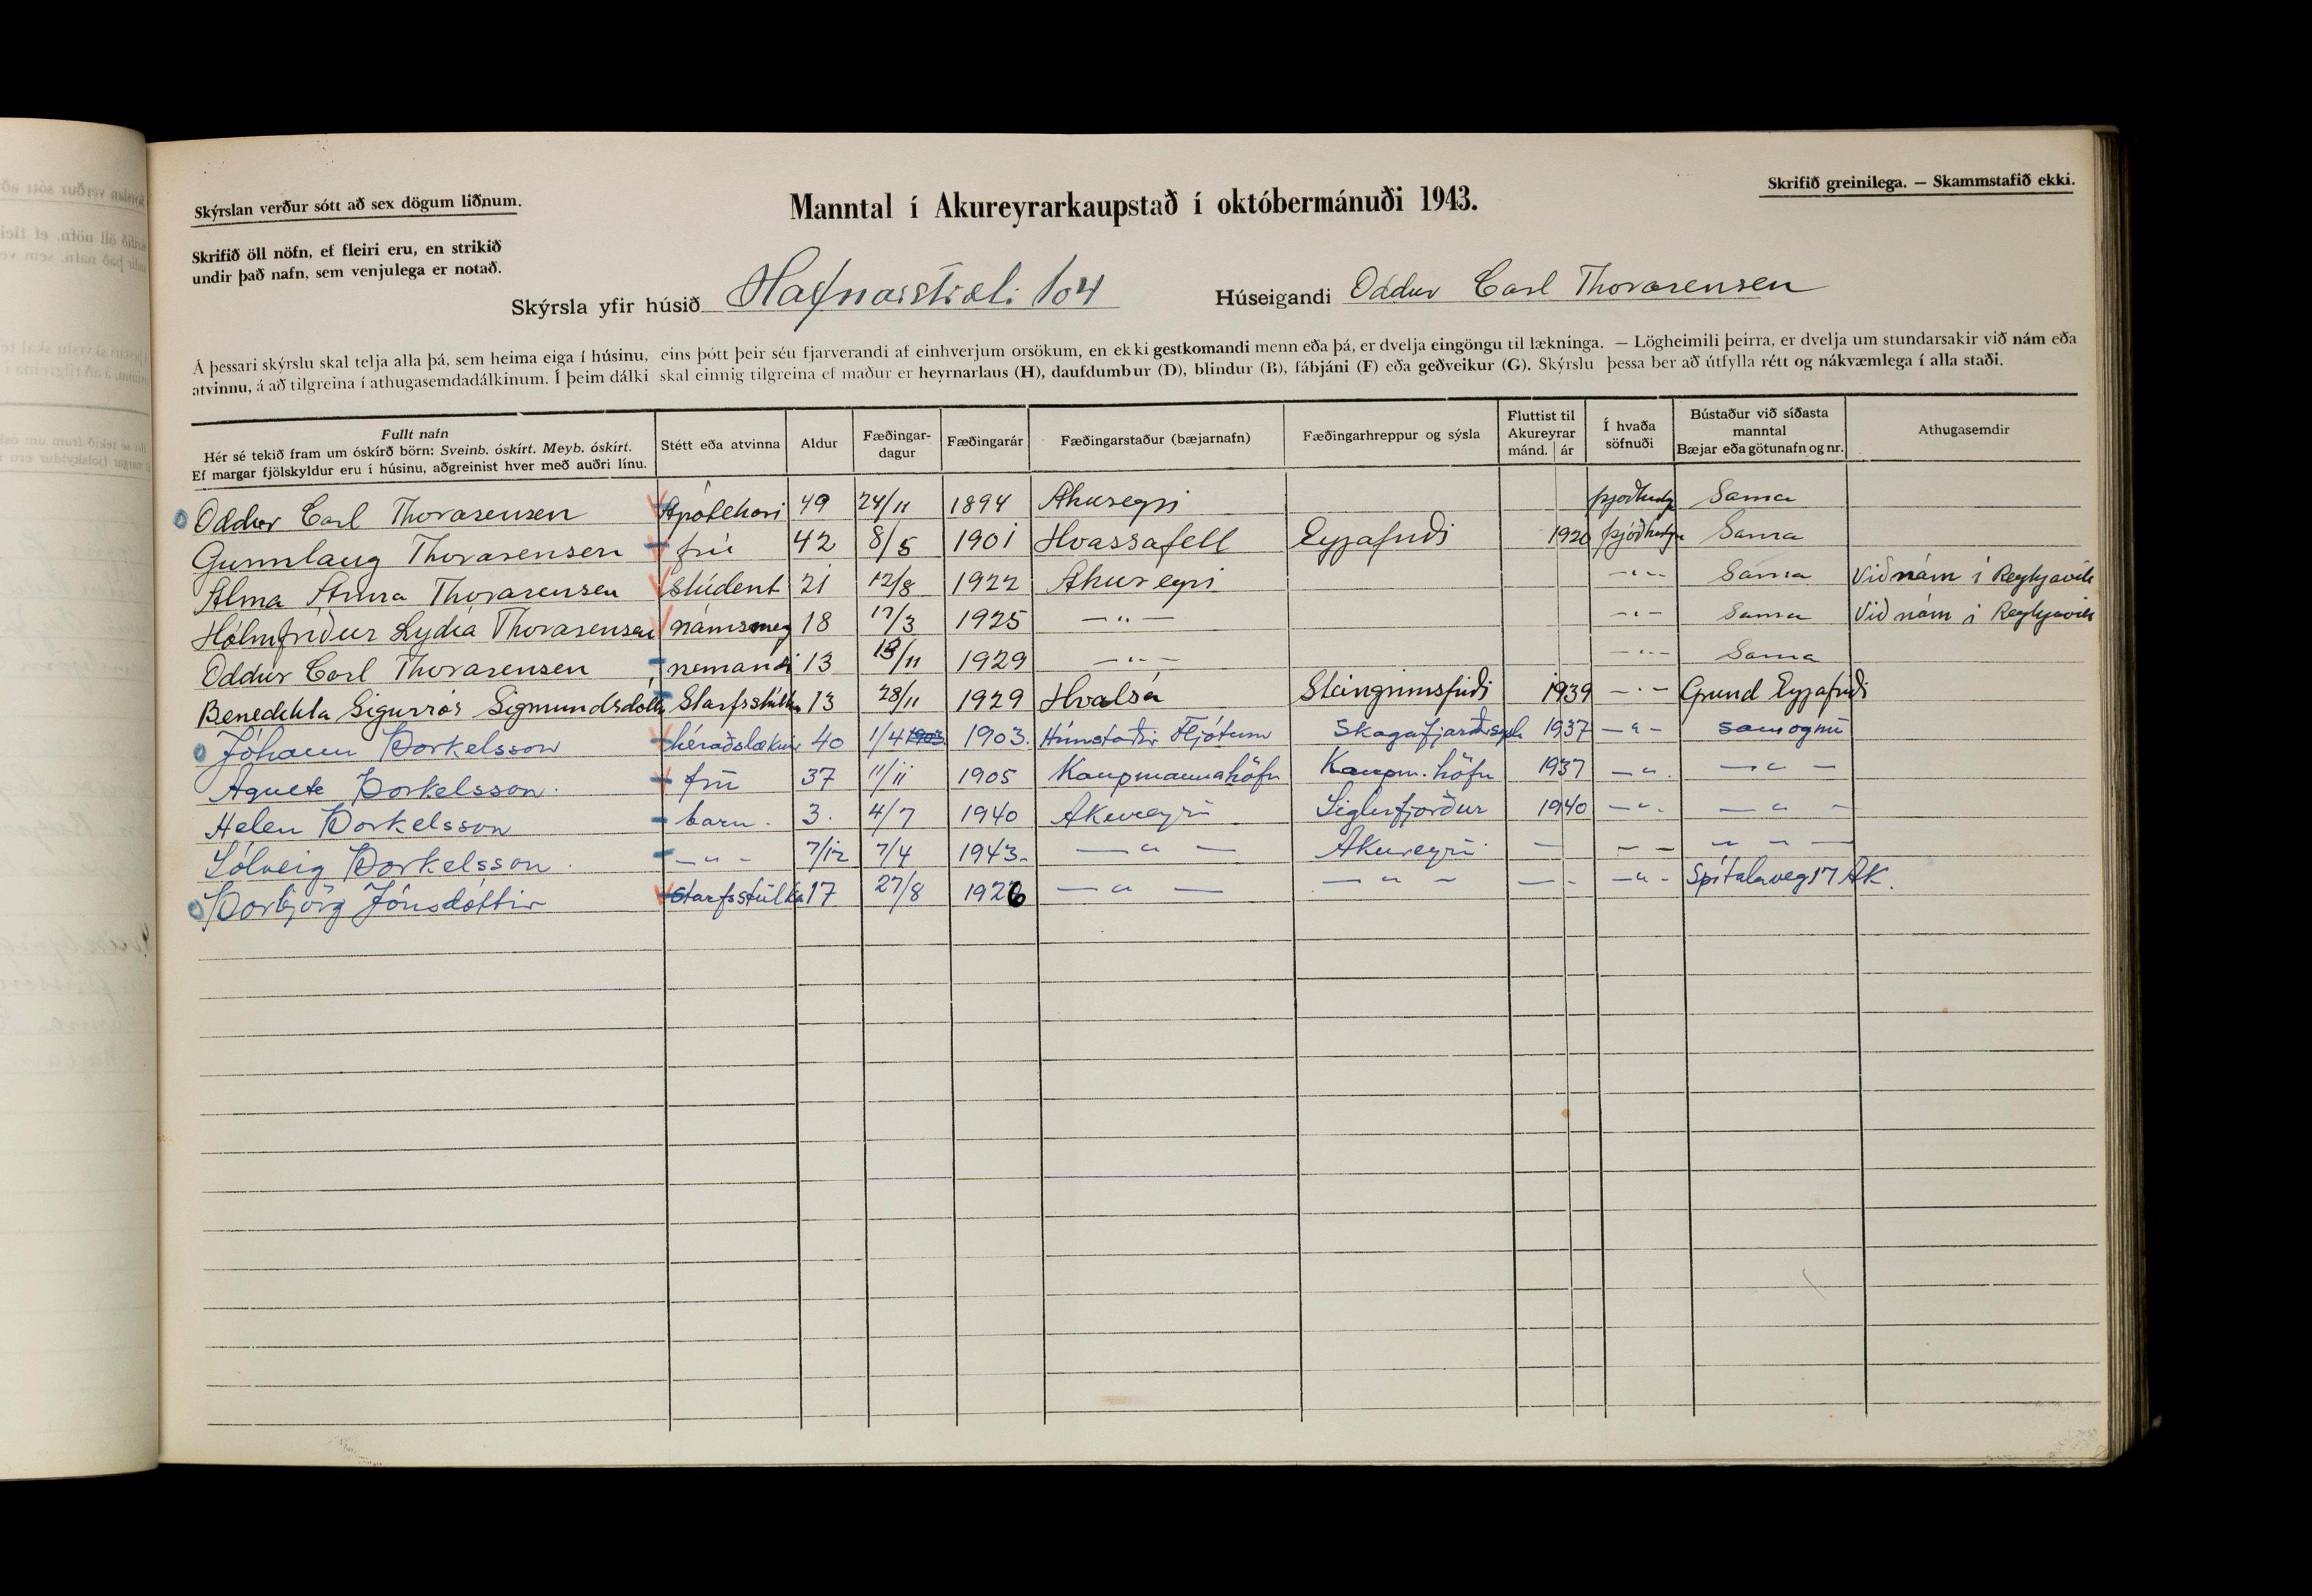 Skýrslan verður sótt að sex dögum liðnum.
Manntal í Akureyrarkaupstað í októbermánuði 1943.
Skrifið greinilega. — Skammstafið ekki.
Skrifið öll nöfn, ef fleiri eru, en strikið
undir það nafn, sem venjulega er notað.
Skýrsla yfir húsið Hafnarstræti 104 Húseigandi Oddur Carl Thorarensen
Á þessari skýrslu skal telja alla þá, sem heima eiga í húsinu, eins þótt þeir séu fjarverandi af einhverjum orsökum, en ekki gestkomandi menn eða þá, er dvelja eingöngu til lækninga. — Lögheimili þeirra, er dvelja um stundarsakir við nám eða
atvinnu, á að tilgreina í athugasemdadálkinum. Í þeim dálki skal einnig tilgreina ef maður er heyrnarlaus (H), daufdumbur (D), blindur (B), fábjáni (F) eða geðveikur (G). Skýrslu þessa ber að útfylla rétt og nákvæmlega í alla staði.
Fullt nafn
Hér sé tekið fram um óskírð börn: Sveinb. óskírt. Meyb. óskírt.
Ef margar fjölskyldur eru í húsinu, aðgreinist hver með auðri línu.
Stétt eða atvinna
Aldur
Fæðingar-
dagur
Fæðingarár
Fæðingarstaður (bæjarnafn)
Fæðingarhreppur og sýsla
Fluttist til
Akureyrar
mánd. ár
Í hvaða
söfnuði
Bústaður við síðasta
manntal
Bæjar eða götunafn og nr.
Athugasemdir
Oddur Carl Thorarensen Apótekari 49 24/11 1894 Akureyri Sama
Gunnlaug Thorarensen frú 42 8/5 1901 Hvassafell Eyjafirði 1920 Sama
Alma Anna Thorarensen stúdent 21 12/8 1922 Akureyri —"— Sama Við nám í Reykjavík
Hólmfríður Lydia Thorarensen námsmey 18 17/3 1925 —"— —"— Sama Við nám í Reykjavík
Oddur Carl Thorarensen nemandi 13 13/11 1929 —"— —"— Sama
Benedikta Sigurrós Sigmundsdóttir Starfsstúlka 13 28/11 1929 Hvalsá Steingrímsfirði 1939 —"— Grund Eyjafirði
Jóhann Þorkelsson héraðslæknir 40 1/4 1903 1903. Fljótum Skagafjarðarsýsla 1937 —"— sam og nú
Agnete Þorkelsson. frú 37 11/11 1905 Kaupmannahöfn Kaupm.höfn 1937 —"— —"—
Helen Þorkelsson barn. 3. 4/7 1940 Akureyri Siglufjörður 1940 —"— —"—
Sólveig Þorkelsson. —"— 7/12 7/4 1943. —"— Akureyri — — — — " —
Þorbjörg Jónsdóttir starfsstúlka 17 27/8 1926 —"— —"— — —"— Spítalaveg 17 Ak.